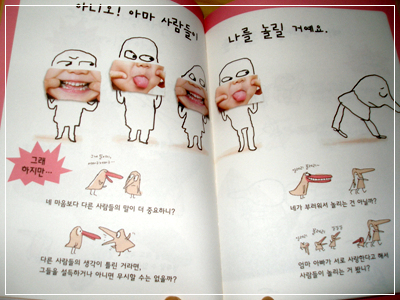 아니오! 아마 사람들이
나를 놀릴 거예요.
그래
하지만…
네 마음보다 다른 사람들의 말이 더 중요하니?
다른 사람들의 생각이 틀린 거라면,
그들을 설득하거나 아니면 무시할 수는 없을까?
네가 부러워서 놀리는 건 아닐까?
엄마 아빠가 서로 사랑한다고 해서
사람들이 놀리는 거 봤니?